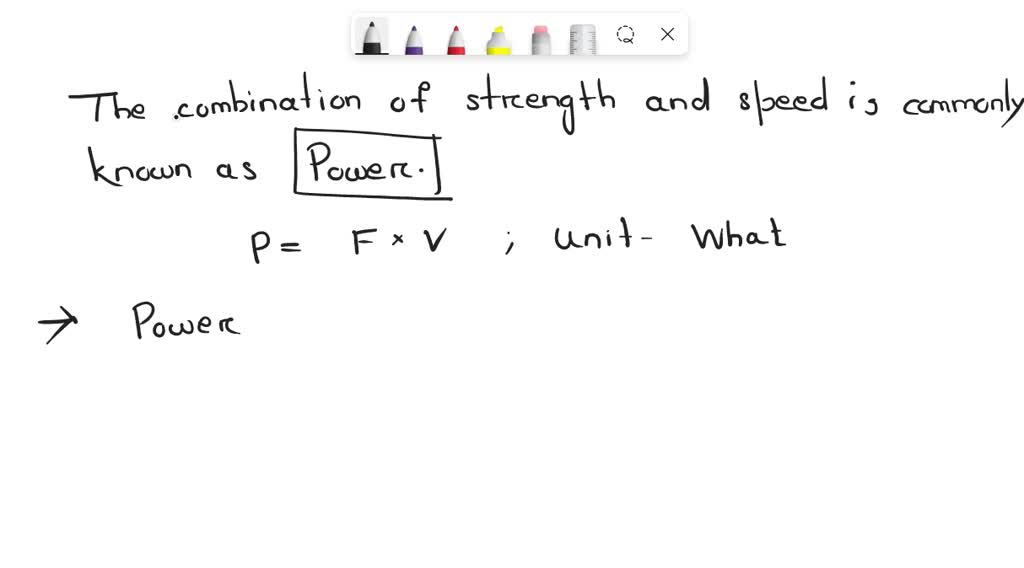 The combination of strength and speed is commonly
known as Power.
P = F × V ; Unit - What
→ Power